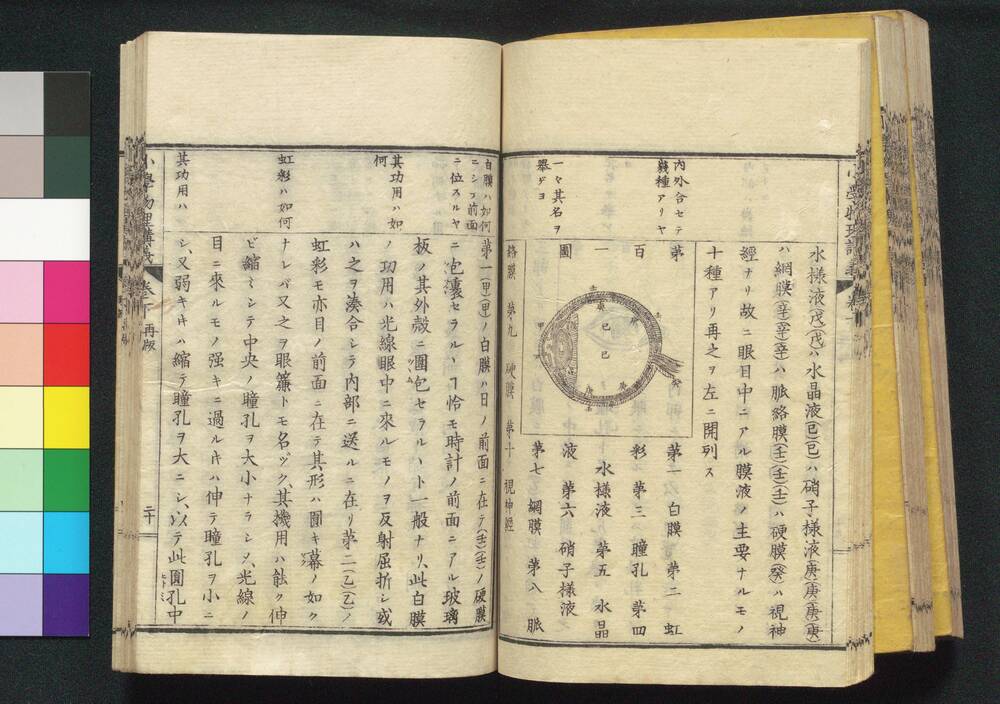 内外合セテ
幾種アリヤ
一々其名ヲ
擧ゲヨ
水樣液(戊)(戊)ハ水晶液(己)(己)ハ硝子樣液(庚)(庚)(庚)(庚)
ハ網膜(辛)(辛)(辛)ハ脈絡膜(壬)(壬)(壬)ハ硬膜(癸)ハ視神
經ナリ故ニ眼目中ニアル膜液ノ主要ナルモノ
十種アリ再之ヲ左ニ開列ス
第百一圖
第一 白膜 第二 虹
彩 第三 瞳孔 第四
水樣液 第五 水晶
液 第六 硝子樣液
第七 網膜 第八 脈
絡膜 第九 硬膜 第十 視神經
白膜ハ如何
ニシテ前面
ニ位スルヤ
其功用ハ如
何
虹彩ハ如何
其功用ハ
第一(甲)(甲)ノ白膜ハ目ノ前面ニ在テ(壬)(壬)ノ硬膜
ニ包裹セラルヽヿ恰モ時計ノ前面ニアル玻璃
板ノ其外殻ニ圍包セラルヽト一般ナリ此白膜
ノ功用ハ光線眼中ニ來ルモノヲ反射屈折シ或
ハ之ヲ湊合シテ內部ニ送ルニ在リ第二(乙)(乙)ノ
虹彩モ亦目ノ前面ニ在テ其形ハ圓キ幕ノ如ク
ナレバ又之ヲ眼簾トモ名ヅク其機用ハ能ク伸
ビ縮ミシテ中央ノ瞳孔ヲ大小ナラシメ光線ノ
目ニ來ルモノ强キニ過ルキハ伸テ瞳孔ヲ小ニ
シ又弱キキハ縮テ瞳孔ヲ大ニシ以テ此圓孔中
小學物理講義 卷一 再版
二十